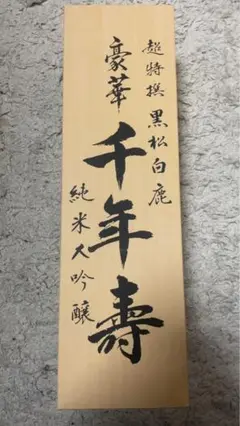 超特撰 黒松白鹿
豪華 千年壽
純米大吟醸